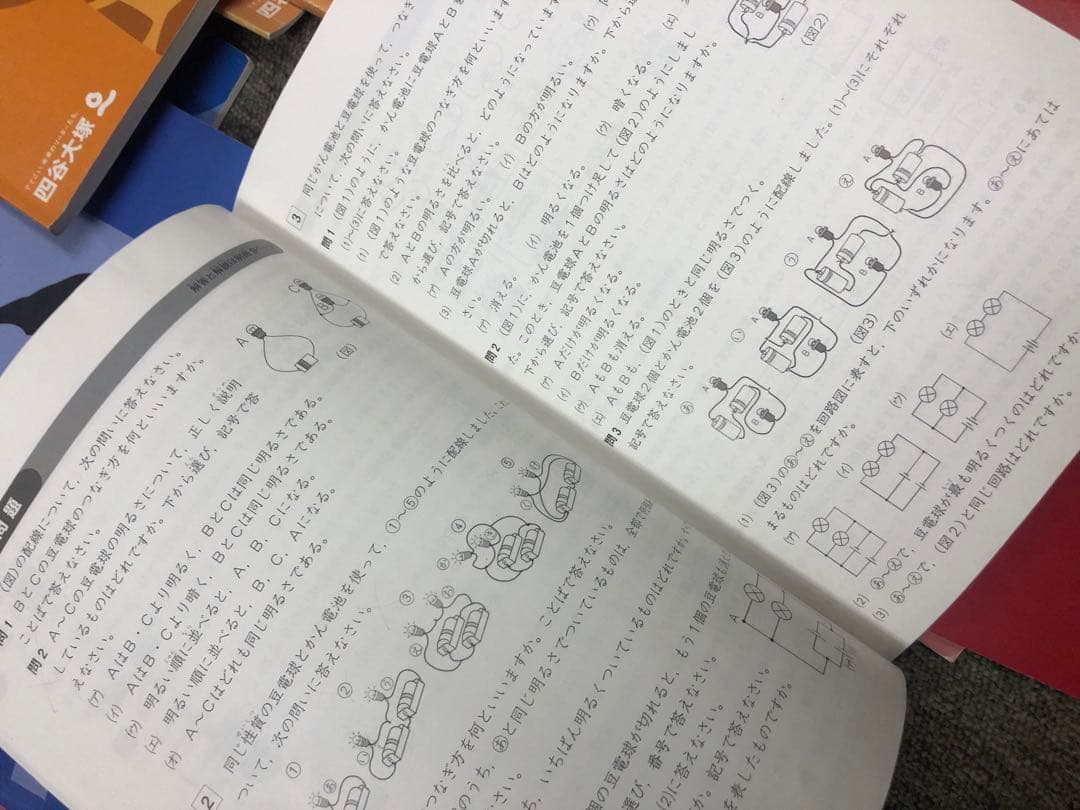 やさしい未来のリーダーたち。
四谷大塚
四谷大塚
問題
(図)の配線について、次の問いに答えなさい。
問1
BとCの豆電球のつなぎ方を何といいますか。
ことばで答えなさい。
問2 A～Cの豆電球の明るさについて、正しく説明
しているものはどれですか。下から選び、記号で答
えなさい。
(ア) AはB・Cより明るく、BとCは同じ明るさである。
(イ) AはB・Cより暗く、BとCは同じ明るさである。
(ウ) 明るい順に並べると、A、B、Cになる。
(エ) 明るい順に並べると、B、C、Aになる。
(オ) A～Cはどれも同じ明るさである。
A
B
C
(図)
2
同じ性質の豆電球とかん電池を使って、①～⑤のように配線しました
ついて、次の問いに答えなさい。
①
②
③
④
⑤
つなぎ方を何といいますか。ことばで答えなさい。
のうち、あと同じ明るさでついているものは、全部で何個
いちばん明るくついているものはどれですか。
個の豆電球が切れると、もう1個の豆電球も消
選び、番号で答えなさい。
(2)に答えなさい。
か。記号で答えなさい。
を表したものですか。
A
3 同じかん電池と豆電球を使って、つなぎ
について、次の問いに答えなさい。
問1 (図1)のように、かん電池に豆電球AとBを
(1)～(3)に答えなさい。
(1) (図1)のような豆電球のつなぎ方を何といいます
で答えなさい。
(2) AとBの明るさを比べると、どのようになっています
から選び、記号で答えなさい。
(ア) Aの方が明るい。 (イ) Bの方が明るい。 (ウ)
(3) 豆電球Aが切れると、Bはどのようになりますか。下から選
さい。
(ア) 消える。 (イ) 明るくなる。 (ウ) 暗くなる。 (エ)
問2 (図1)に、かん電池を1個つけ足して(図2)のようにしまし
た。このとき、豆電球AとBの明るさはどのようになりますか。
下から選び、記号で答えなさい。
(ア) Aだけが明るくなる。
(イ) Bだけが明るくなる。
(ウ) AもBも消える。
(エ) AもBも、(図1)のときと同じ明るさでつく。
B
(図2)
問3 豆電球2個とかん電池2個を(図3)のように配線しました。(1)～(3)にそれぞれ
記号で答えなさい。
あ
い
う
え
A
B
A
B
A
B
A
B
(図3)
(1) (図3)のあ～えを回路図に表すと、下のいずれかになります。あ～えにあては
まるものはどれですか。
(ア)
(イ)
(ウ)
(エ)
(2) あ～えで、豆電球が最も明るくつくのはどれですか。
(3) あ～えで、(図2)と同じ回路はどれですか。